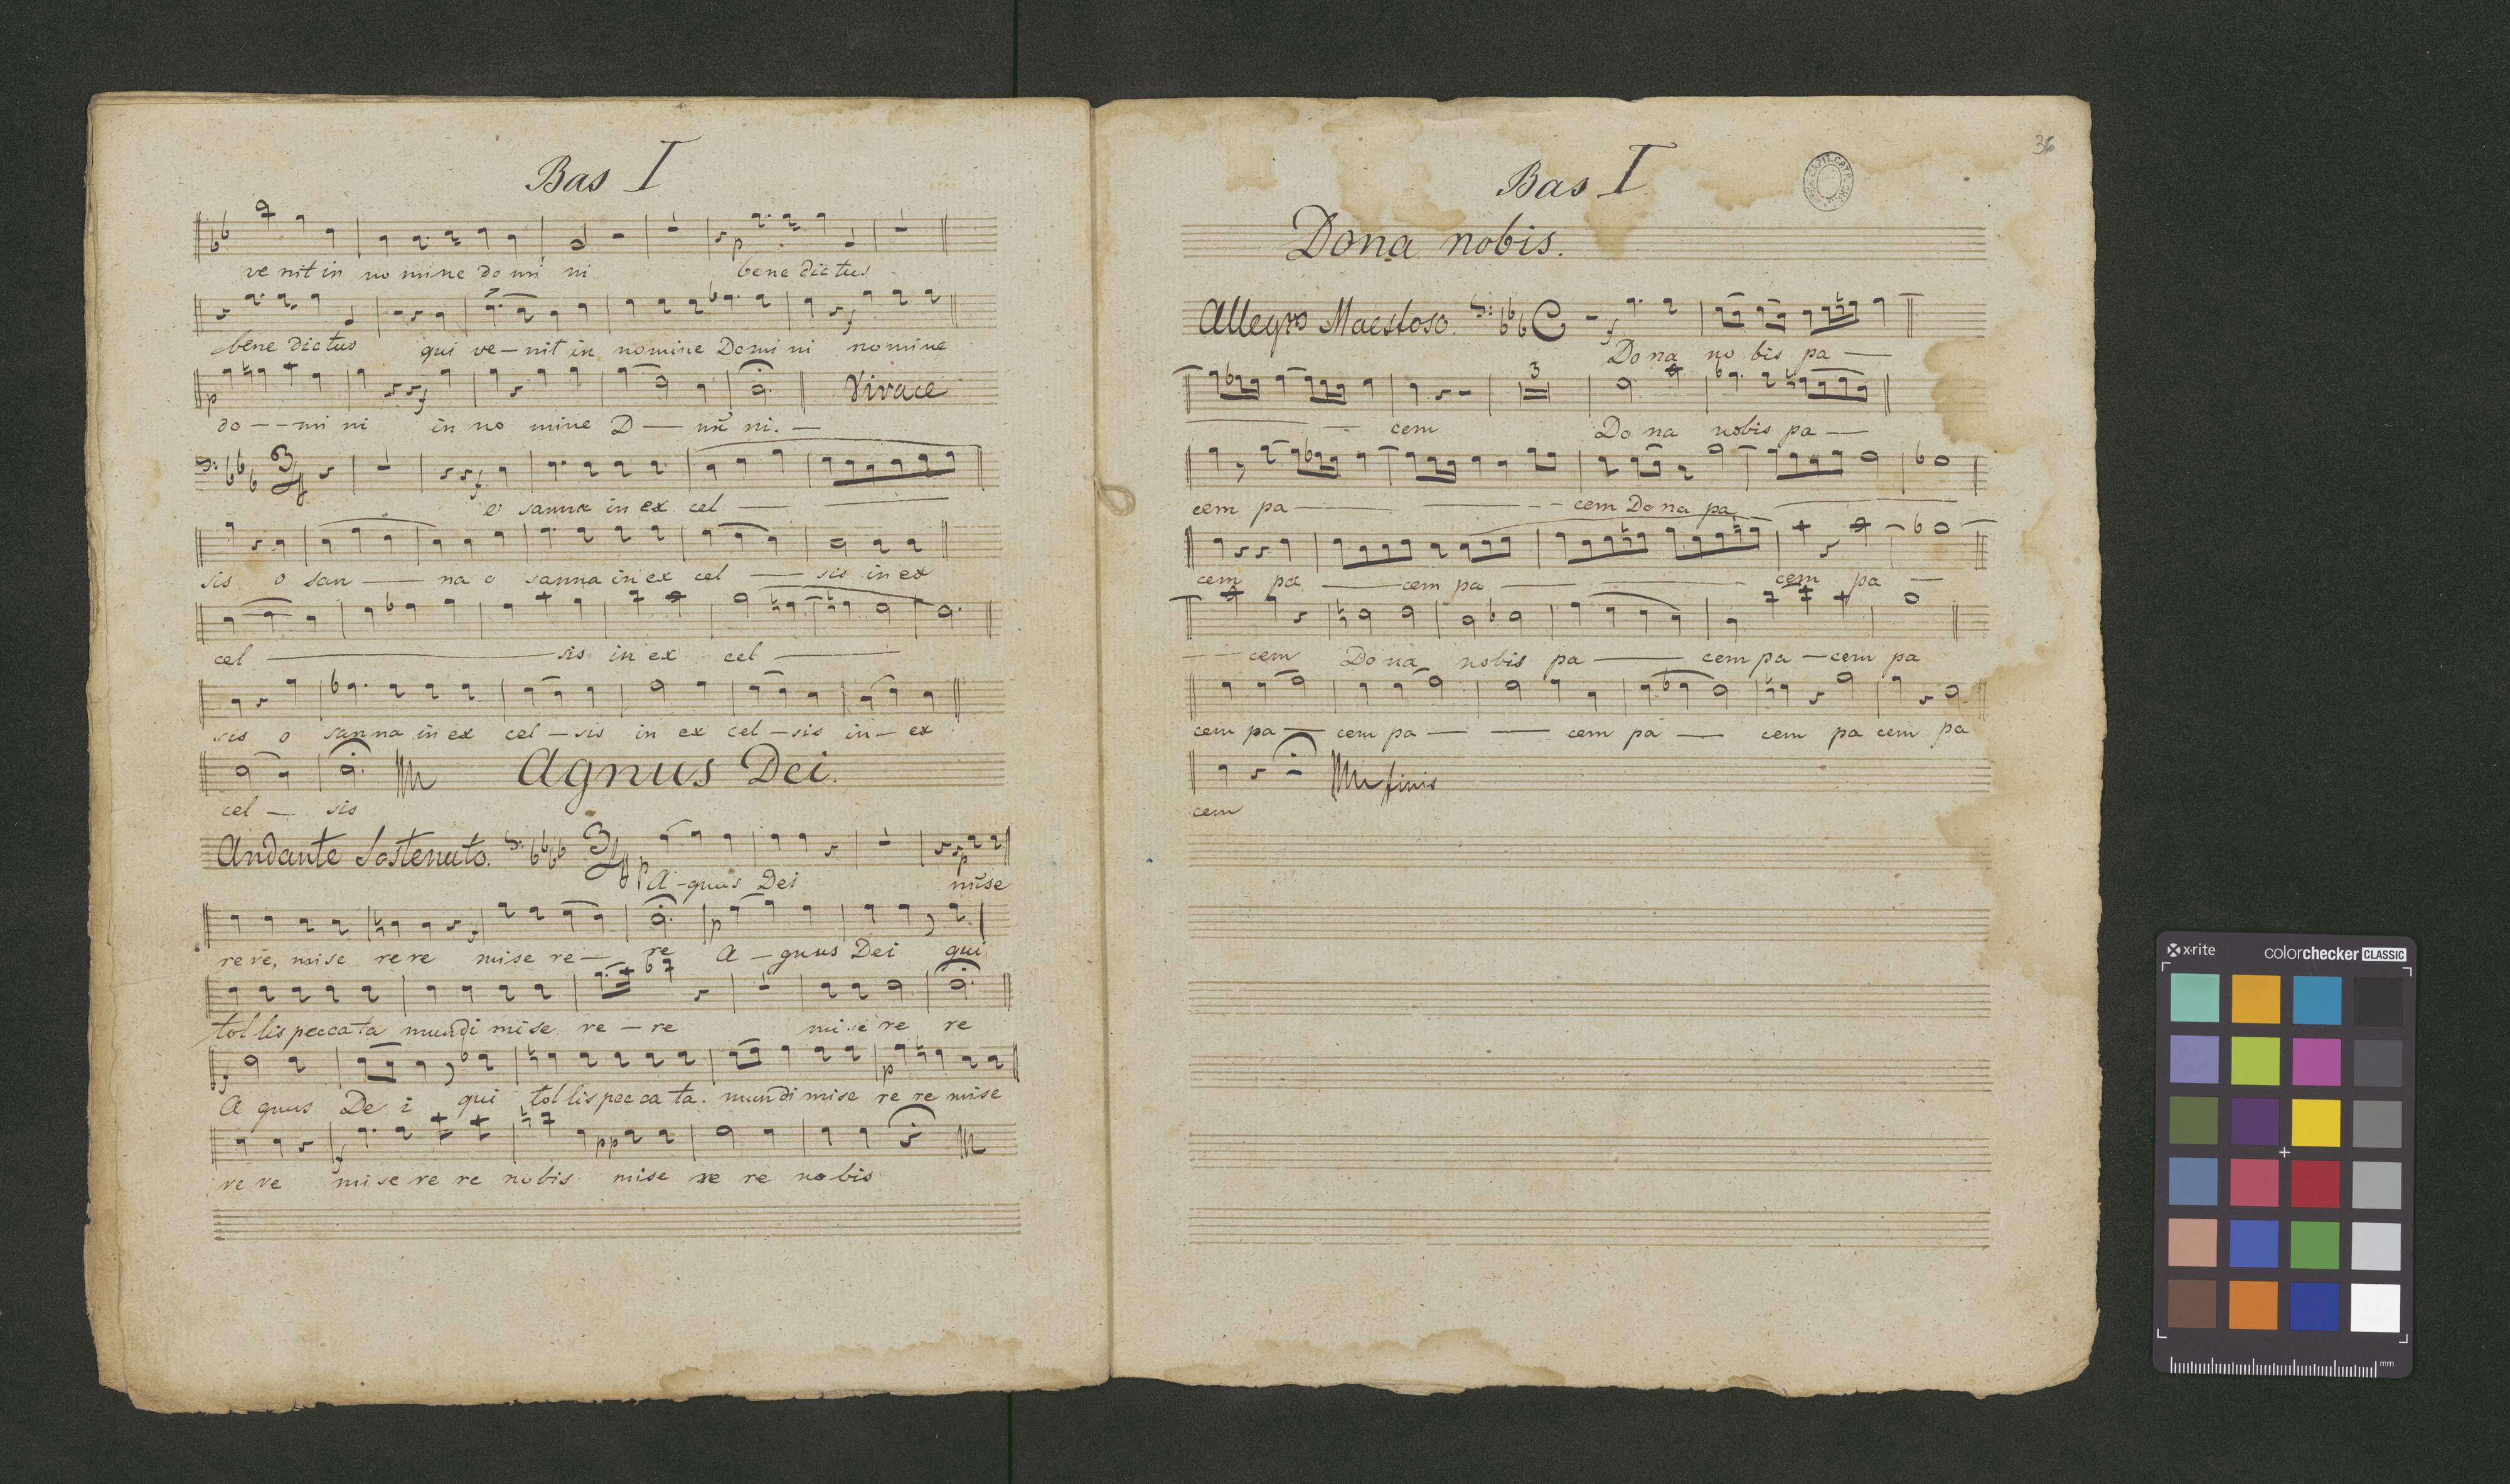 Bas I
ve nit in no mine do mi ni bene dictus
bene dictus qui ve - nit in nomine Domi ni nomine
do - - mi ni in no mine D - ni.
Vivace
o sanna in ex cel
sis o san na o sanna in ex cel sis in ex
cel sis in ex cel
sis o sanna in ex cel - sis in ex cel - sis in - ex
cel - sis
Agnus Dei.
Andante Sostenuto.
A - gnus Dei mise
rere, mise rere mise re - re A - gnus Dei qui
tol lis peccata mundi mise re - re mise re re
A gnus De i qui tol lis pec ca ta. mundi mise re re mise
re re mise re re nobis. mise re re nobis
Bas I
36
Dona nobis.
Allegro Maestoso.
Do na no bis pa
3
cem Do na nobis pa
cem pa - - cem Do na pa
cem pa cem pa cem pa
cem Do na nobis pa cem pa - cem pa
cem pa - cem pa - cem pa - cem pa cem pa
finis
cem
x-rite colorchecker CLASSIC
mm